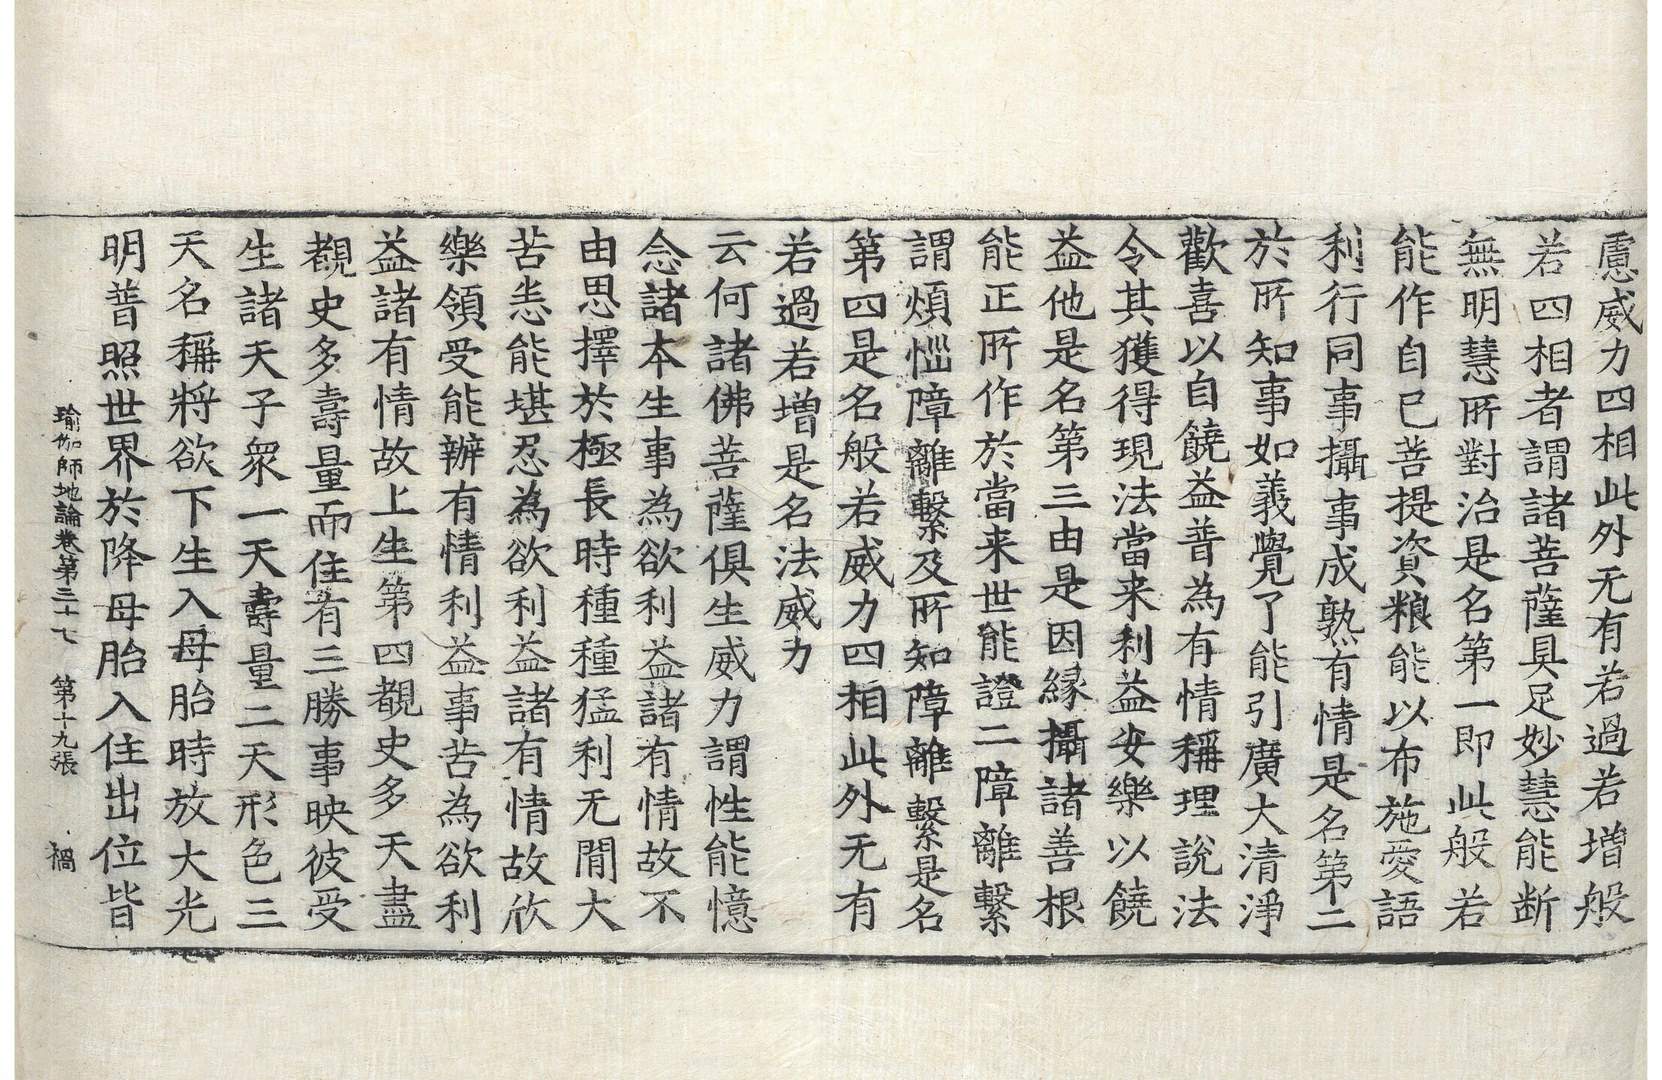 慮威力四相此外无有若過若增般
若四相者謂諸菩薩具足妙慧能断
無明慧所對治是名第一即此般若
能作自已菩提資粮能以布施愛語
利行同事攝事成熟有情是名第二
於所知事如義覺了能引廣大清淨
歡喜以自饒益普為有情稱理說法
令其獲得現法當来利益安樂以饒
益他是名第三由是因縁攝諸善根
能正所作於當来世能證二障離繫
謂煩惱障離繫及所知障離繫是名
第四是名般若威力四相此外无有
若過若增是名法威力
云何諸佛菩薩俱生威力謂性能憶
念諸本生事為欲利益諸有情故不
由思擇於極長時種種猛利无間大
苦恙能堪忍為欲利益諸有情故欣
樂領受能辦有情利益事苦為欲利
益諸有情故上生第四覩史多天盡
覩史多壽量而住有三勝事映彼受
生諸天子衆一天壽量二天形色三
天名稱將欲下生入母胎時放大光
明普照世界於降母胎入住出位皆
瑜伽師地論卷第三十七 第十九張 禍